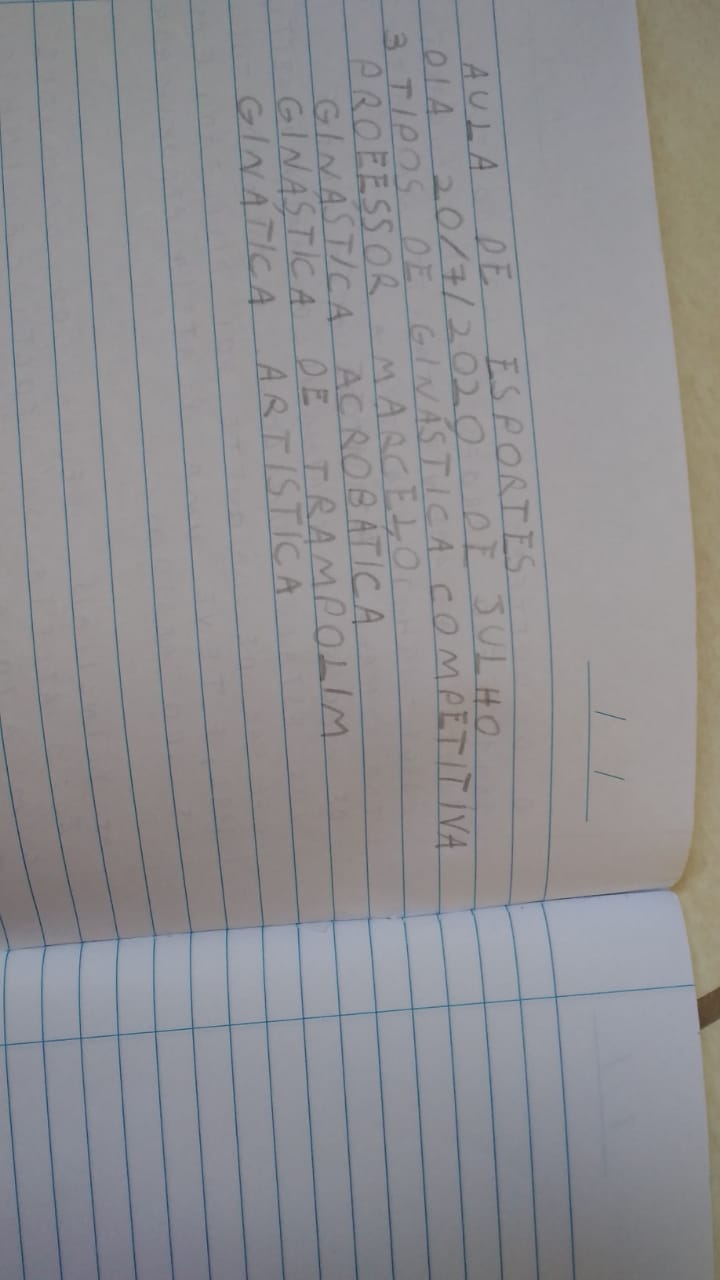 AULA DE ESPORTES
DIA 20/7/2020 DE JULHO
3 TIPOS DE GINÁSTICA COMPETITIVA
PROFESSOR MARCELO
GINASTICA ACROBATICA
GINASTICA DE TRAMPOLIM
GINATICA ARTISTICA